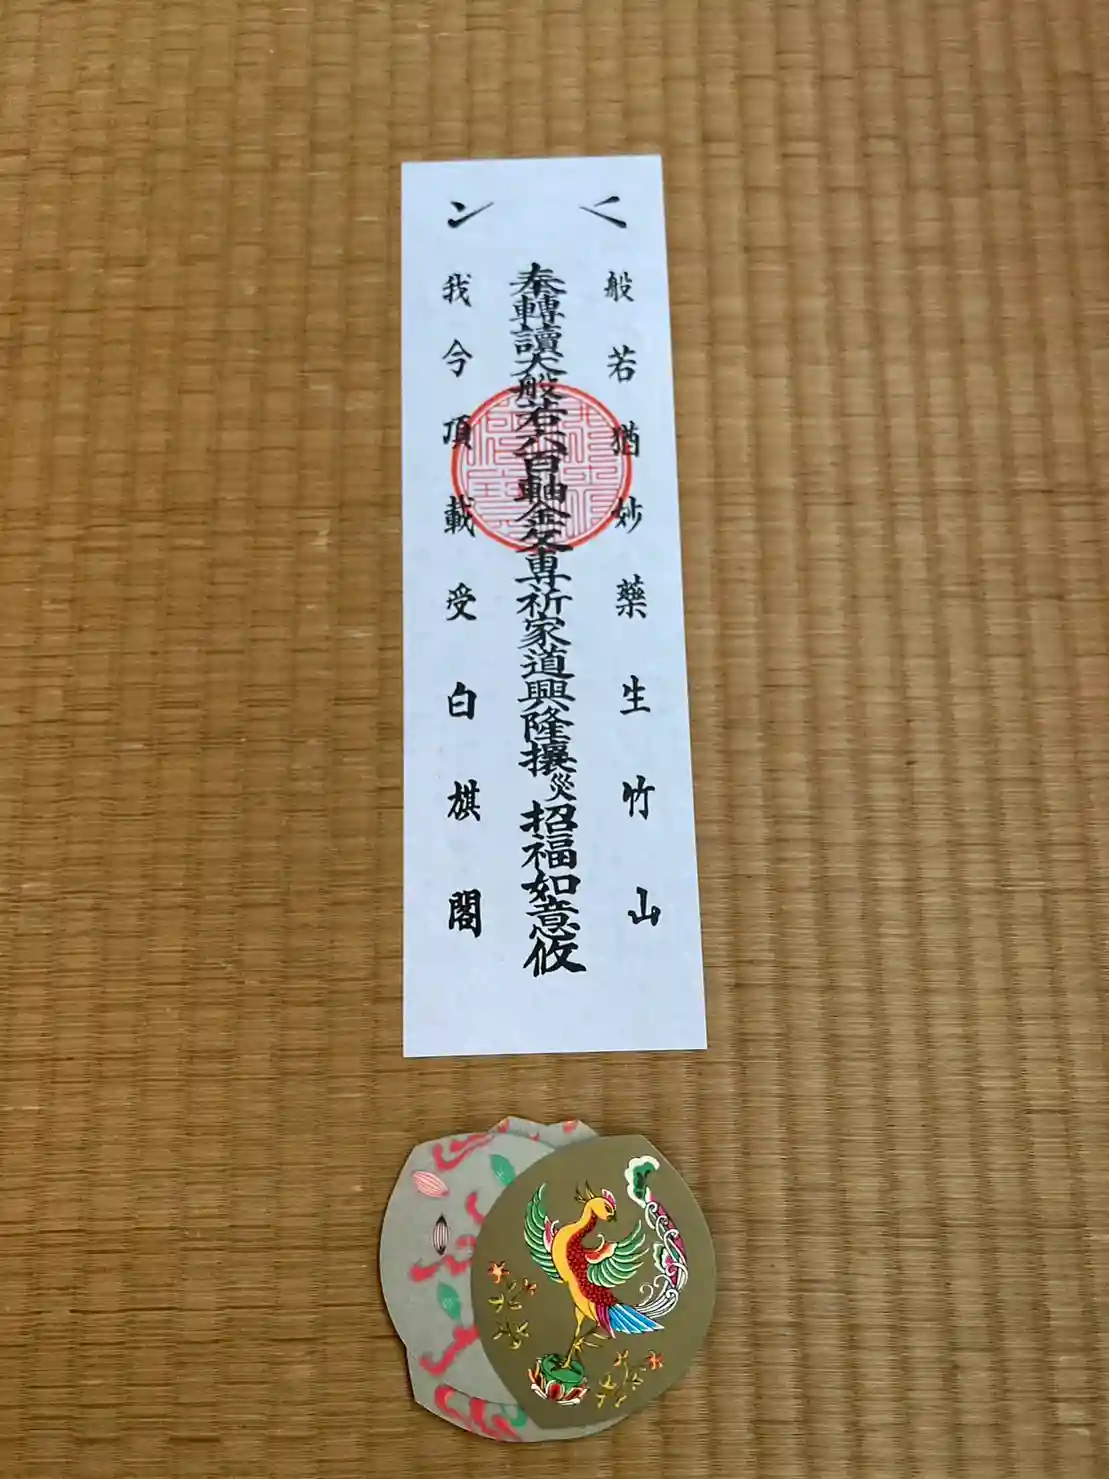 般若猶妙藥生竹山
奉轉讀大般若六百軸金文専祈家道興隆攘災招福如意攸
我今頂載受白棋閣